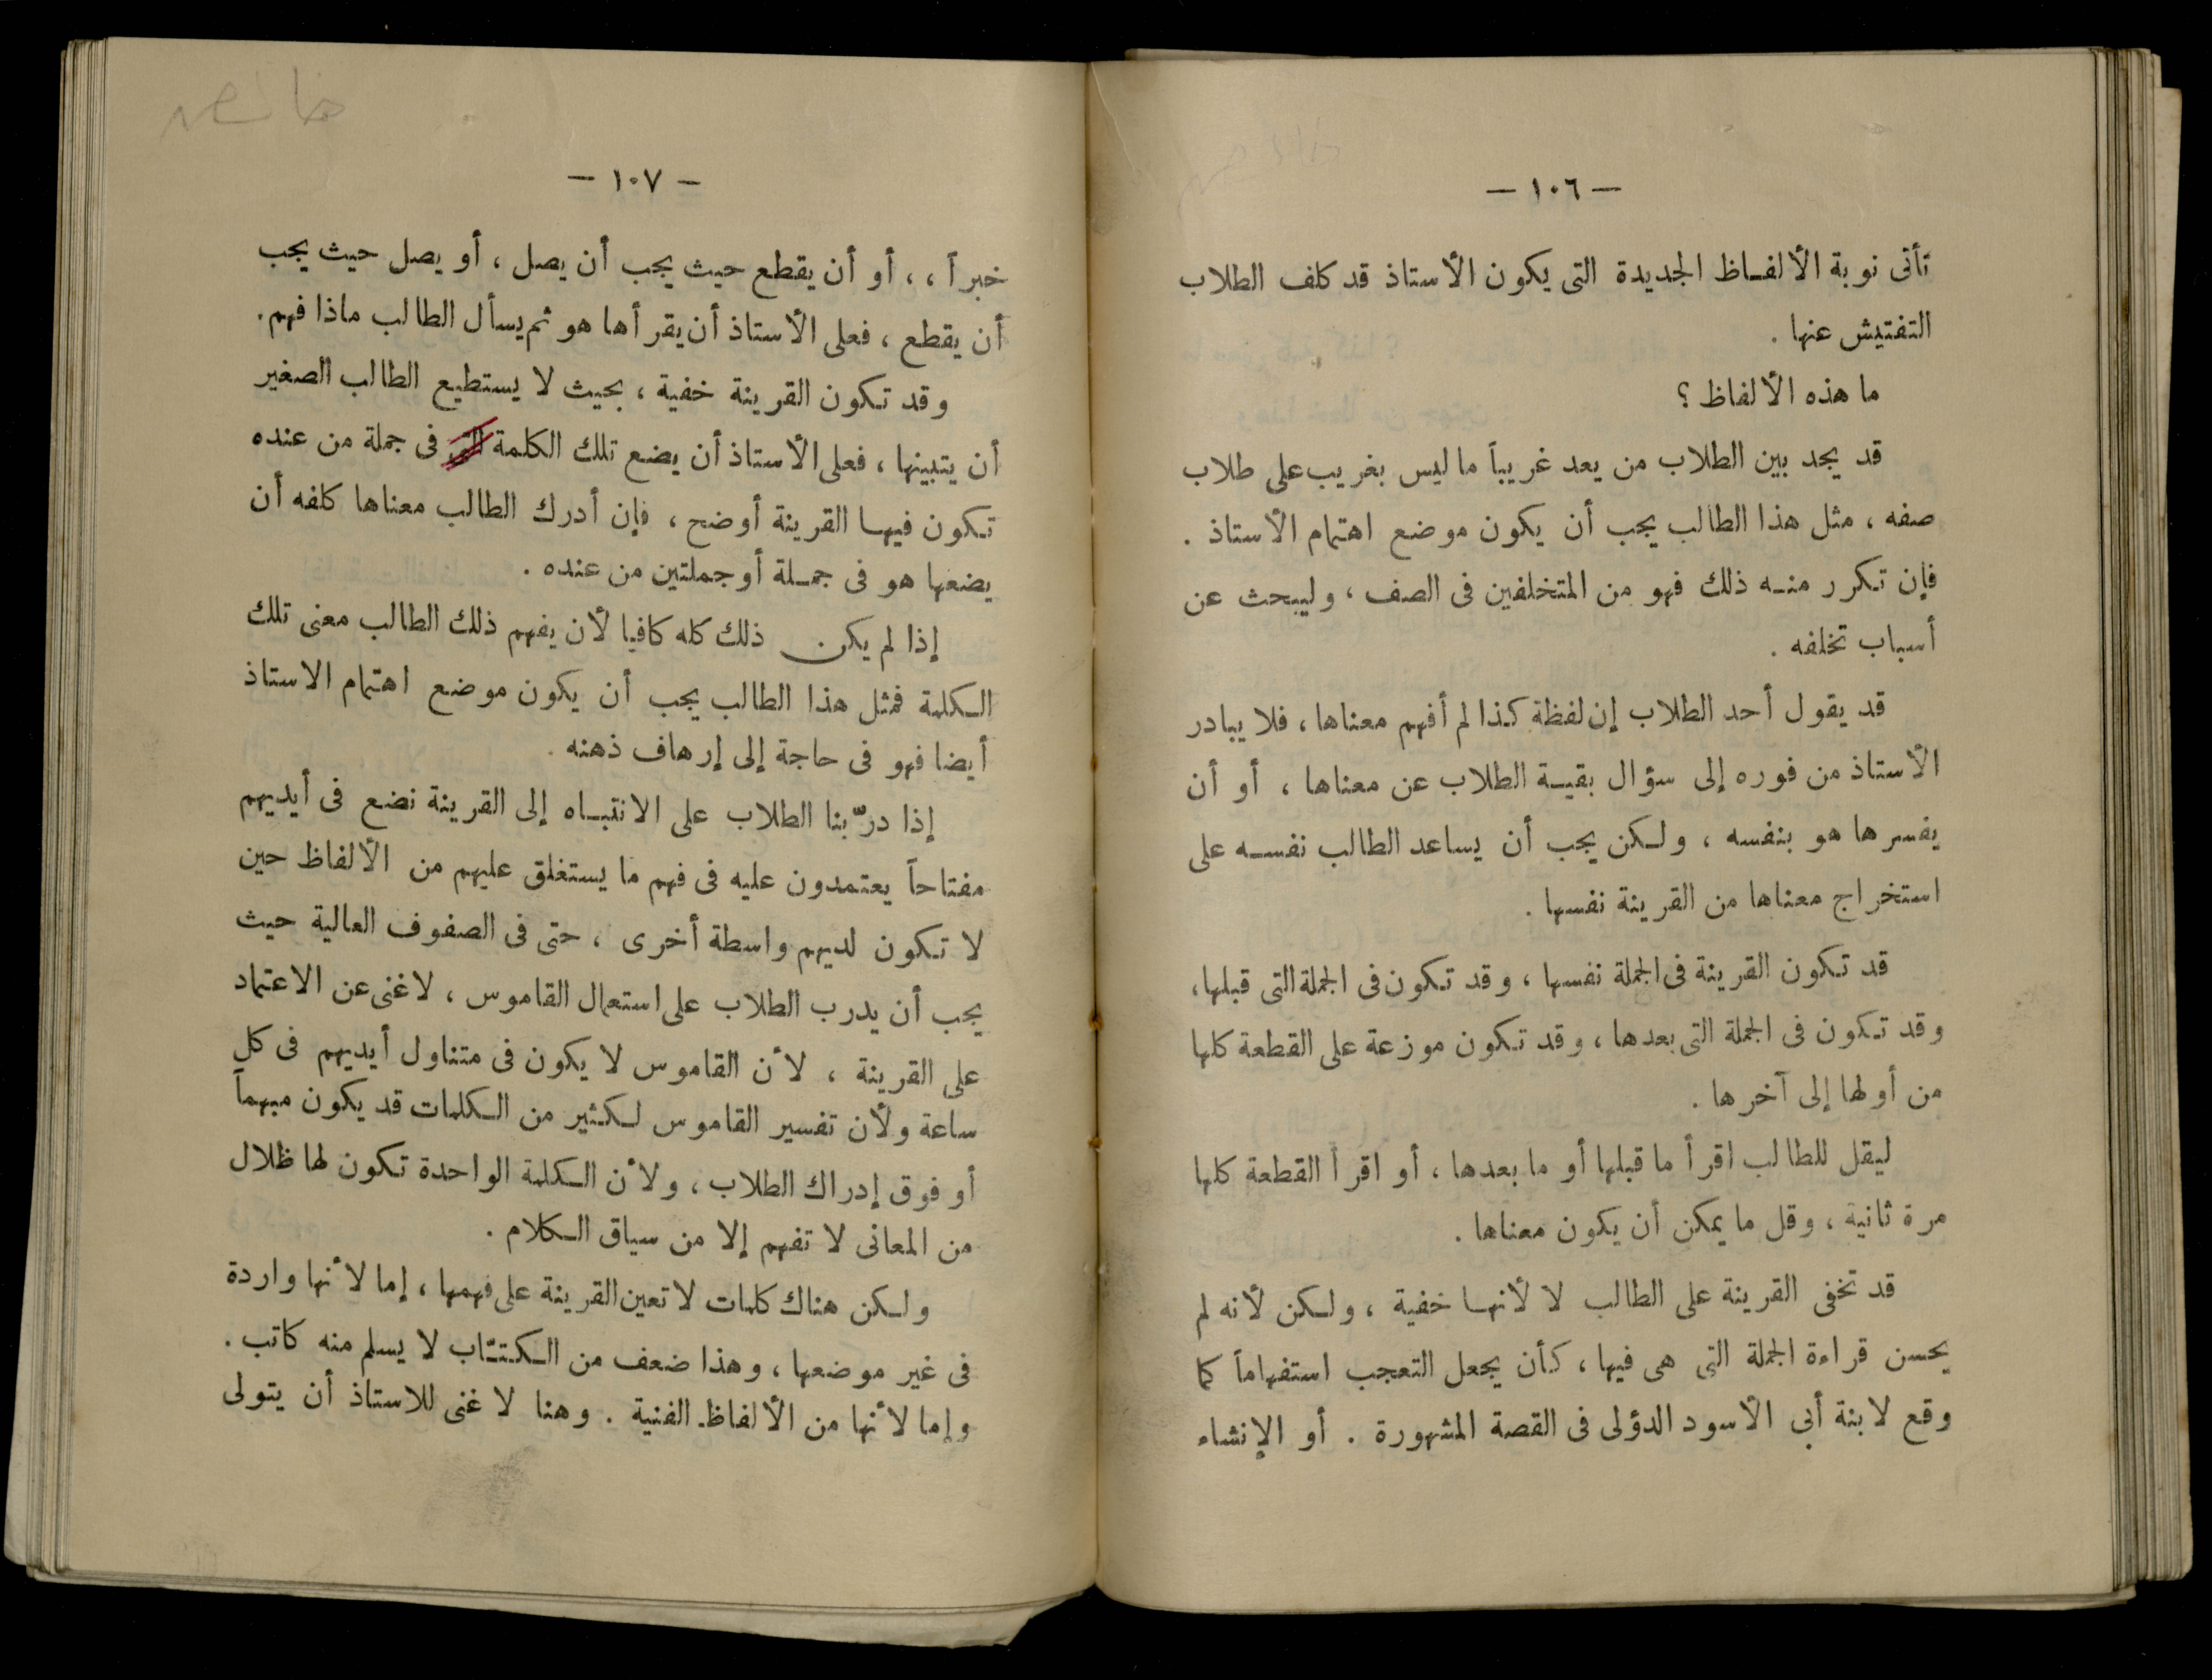 — ١٠٦ —
تأتى نوبة الألفاظ الجديدة التى يكون الأستاذ قد كلف الطلاب
التفتيش عنها .
ما هذه الألفاظ ؟
قد يجد بين الطلاب من يعد غريباً ما ليس بغريب على طلاب
صفه ، مثل هذا الطالب يجب أن يكون موضع اهتمام الأستاذ .
فإن تكرر منه ذلك فهو من المتخلفين فى الصف ، وليبحث عن
أسباب تخلفه .
قد يقول أحد الطلاب إن لفظة كذا لم أفهم معناها ، فلا يبادر
الأستاذ من فوره إلى سؤال بقية الطلاب عن معناها ، أو أن
يفسرها هو بنفسه ، ولكن يجب أن يساعد الطالب نفسه على
استخراج معناها من القرينة نفسها .
قد تكون القرينة فى الجملة نفسها ، وقد تكون فى الجملة التى قبلها ،
وقد تكون فى الجملة التى بعدها ، وقد تكون موزعة على القطعة كلها
من أولها إلى آخرها .
ليقل للطالب اقرأ ما قبلها أو ما بعدها ، أو اقرأ القطعة كلها
مرة ثانية ، وقل ما يمكن أن يكون معناها .
قد تخفى القرينة على الطالب لا لأنها خفية ، ولكن لأنه لم
يحسن قراءة الجملة التى هى فيها ، كأن يجعل التعجب استفهاماً كما
وقع لابنة أبى الأسود الدؤلى فى القصة المشهورة . أو الإنشاء
— ١٠٧ —
خبراً ، ، أو أن يقطع حيث يجب أن يصل ، أو يصل حيث يجب
أن يقطع ، فعلى الأستاذ أن يقرأها هو ثم يسأل الطالب ماذا فهم .
وقد تكون القرينة خفية ، بحيث لا يستطيع الطالب الصغير
أن يتبينها ، فعلى الأستاذ أن يضع تلك الكلمة التى فى جملة من عنده
تكون فيها القرينة أوضح ، فإن أدرك الطالب معناها كلفه أن
يضعها هو فى جملة أو جملتين من عنده .
إذا لم يكن ذلك كله كافيا لأن يفهم ذلك الطالب معنى تلك
الكلمة فمثل هذا الطالب يجب أن يكون موضع اهتمام الاستاذ
أيضا فهو فى حاجة إلى إرهاف ذهنه .
إذا درّبنا الطلاب على الانتباه إلى القرينة نضع فى أيديهم
مفتاحاً يعتمدون عليه فى فهم ما يستغلق عليهم من الألفاظ حين
لا تكون لديهم واسطة أخرى ، حتى فى الصفوف العالية حيث
يجب أن يدرب الطلاب على استعمال القاموس ، لا غنى عن الاعتماد
على القرينة ، لأن القاموس لا يكون فى متناول أيديهم فى كل
ساعة ولأن تفسير القاموس لكثير من الكلمات قد يكون مبهماً
أو فوق إدراك الطلاب ، ولأن الكلمة الواحدة تكون لها ظلال
من المعانى لا تفهم إلا من سياق الكلام .
ولكن هناك كلمات لا تعين القرينة على فهمها ، إما لأنها واردة
فى غير موضعها ، وهذا ضعف من الكتّاب لا يسلم منه كاتب .
وإما لأنها من الألفاظ الفنية . وهنا لا غنى للاستاذ أن يتولى